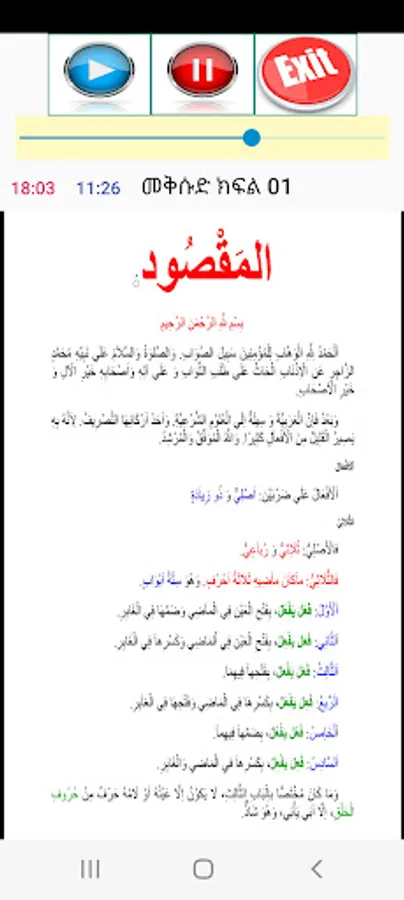 Exit
18:03 11:26 መቅሱድ ክፍል 01
المَقْصُود
بِسْمِ اللهِ الرَّحْمَنِ الرَّحِيمِ
اَلْحَمْدُ لِلّٰهِ الْوَهَّابِ لِلْمُؤْمِنِينَ سَبِيلَ الصَّوَابِ. وَالصَّلَوةُ وَالسَّلَامُ عَلَي نَبِيِّهِ مُحَمَّدٍ
الزَّاجِرِ عَنِ الْاَذْنَابِ الْحَاثِّ عَلَي طَلَبِ الثَّوَابِ وَ عَلَي آلِهِ وَأَصْحَابِهِ خَيْرِ الْآلِ وَ
خَيْرِ الْاَصْحَابِ.
وَبَعْدُ فَاِنَّ الْعَرَبِيَّةَ وَ سِيلَةٌ اِلَي الْعُلُومِ الشَّرْعِيَّةِ. وَاَحَدُ اَرْكَانِهَا التَّصْرِيفُ. لِاَنَّهُ بِهِ
يَصِيرُ الْقَلِيلُ مِنَ الْاَفْعَالِ كَثِيرًا. وَاللهُ الْمُوَفِّقُ وَالْمُرْشِدُ.
الأفعال
اَلْاَفْعَالُ عَلَي ضَرْبَيْنِ: اَصْلِيٌّ وَ ذُو زِيَادَةٍ
الثلاثي
فَالْأَصْلِيُّ: ثُلَاثِيٌّ وَ رُبَاعِيٌّ.
فَالثُّلَاثِيُّ: مَاكَانَ مَاضِيهِ ثَلَاثَةَ اَحْرُفٍ. وَهُوَ سِتَّةُ اَبْوَابٍ.
اَلْاَوَّلُ: فَعَلَ يَفْعُلُ، بِفَتْحِ الْعَيْنِ فِي الْمَاضِي وَضَمِّهَا فِي الْغَابِرِ.
اَلثَّانِي: فَعَلَ يَفْعِلُ، بِفَتْحِ الْعَيْنِ فِي الْمَاضِي وَكَسْرِهَا فِي الْغَابِرِ.
اَلثَّالِثُ: فَعَلَ يَفْعَلُ، بِفَتْحِهَا فِيهِمَا.
اَلرَّابِعُ: فَعِلَ يَفْعَلُ، بِكَسْرِهَا فِي الْمَاضِي وَفَتْحِهَا فِي الْغَابِرِ.
اَلْخَامِسُ: فَعُلَ يَفْعُلُ، بِضَمِّهَا فِيهِمَا.
اَلسَّادِسُ: فَعِلَ يَفْعِلُ، بِكَسْرِهَا فِي الْمَاضِي وَالْغَابِرِ.
وَمَا كَانَ مُخْتَصًّا بِالْبَابِ الثَّالِثِ، لَا يَكُونُ اِلَّا عَيْنُهُ اَوْ لَامُهُ حَرْفٌ مِنْ حُرُوفِ
الْحَلْقِ، اِلَّا اَبَي يَأْبَي، وَهُوَ شَاذٌّ.